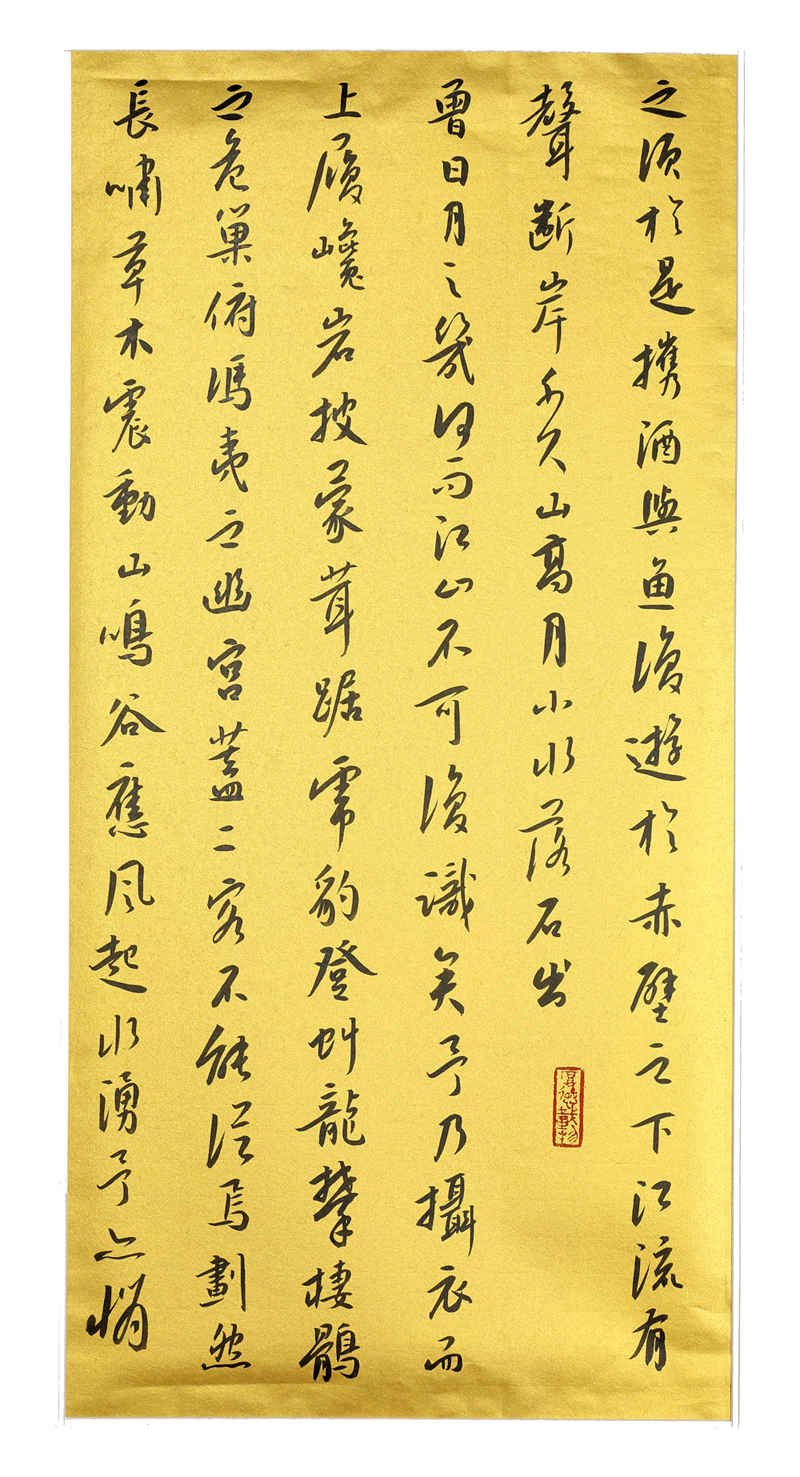 之須於是攜酒與魚復遊於赤壁之下江流有
聲斷岸千尺山高月小水落石出
曾日月之幾何而江山不可復識矣予乃攝衣而
上履巉岩披蒙茸踞虎豹登虯龍攀棲鶻
之危巢俯馮夷之幽宮蓋二客不能從焉劃然
長嘯草木震動山鳴谷應風起水湧予亦悄
厚德載物